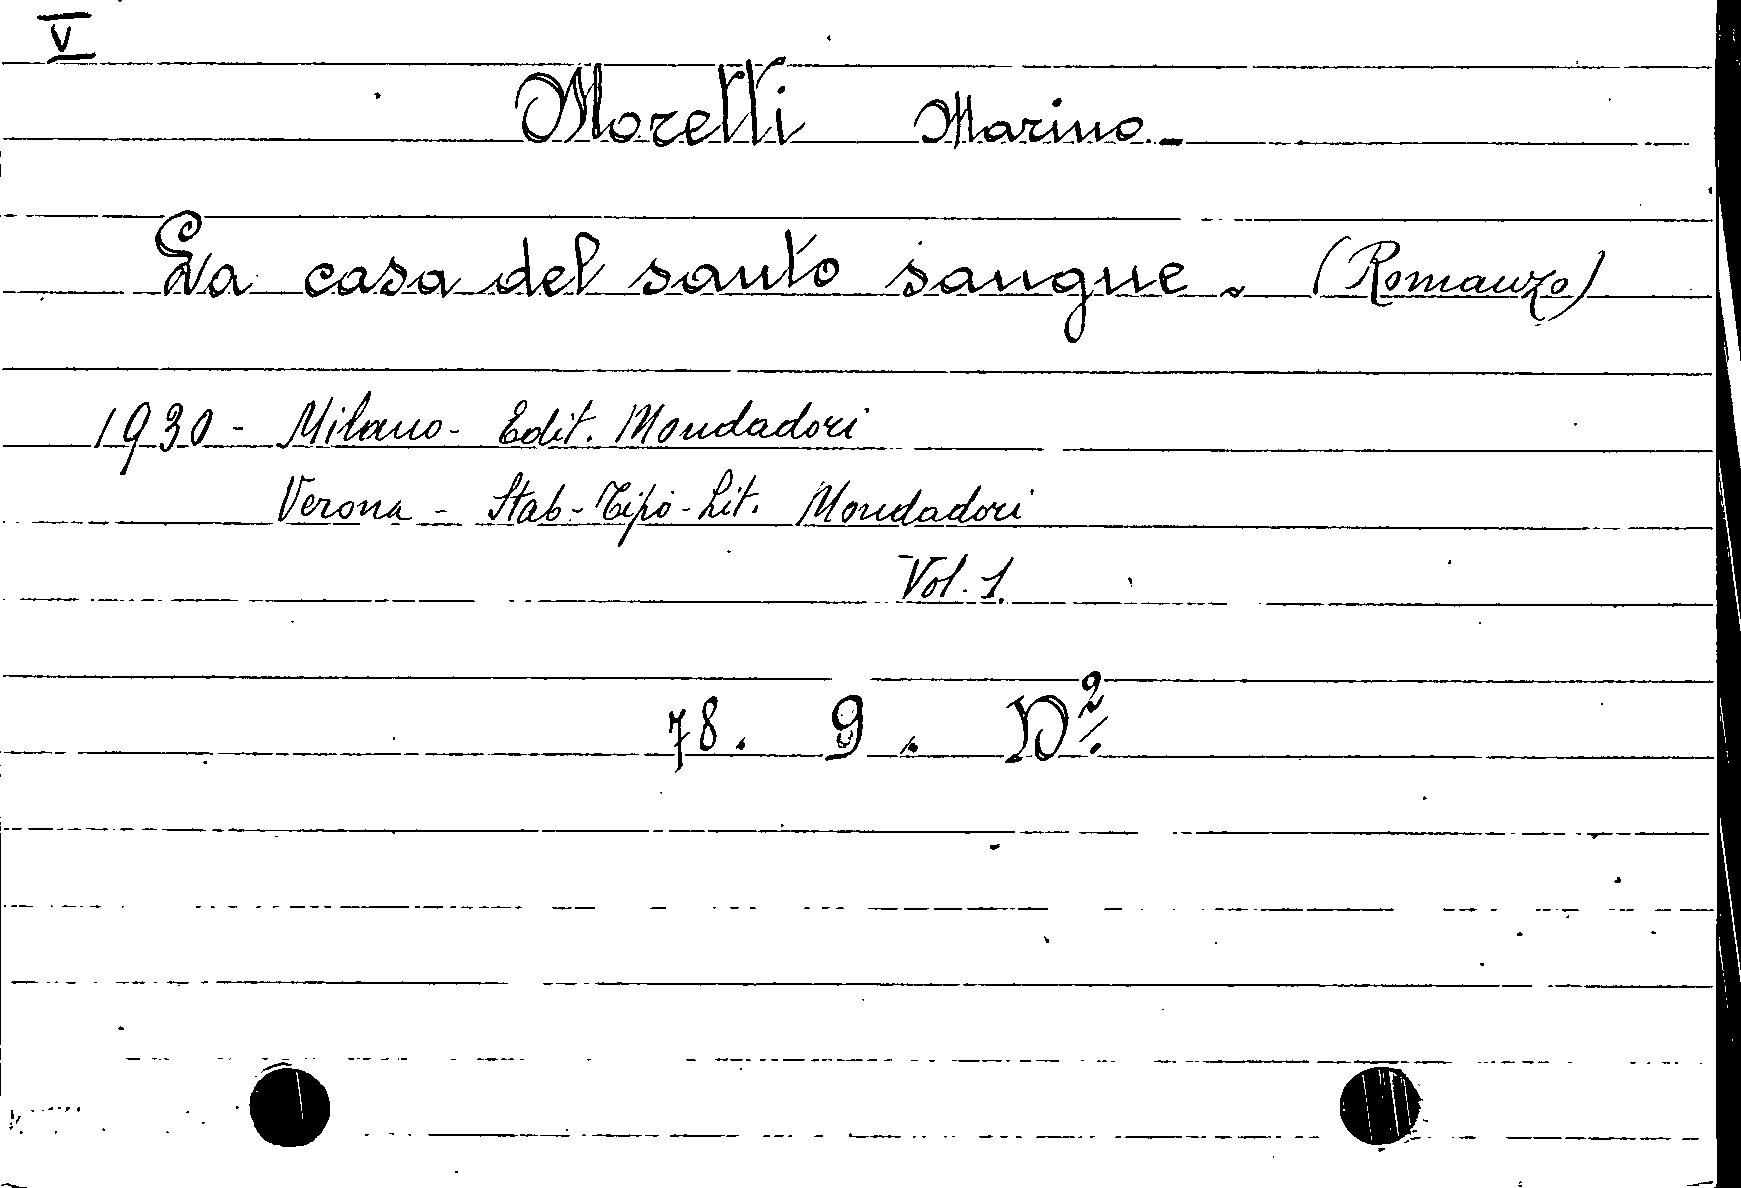 V
Moretti Marino.-
La casa del santo sangue. (Romanzo)
1930 - Milano - Edit. Mondadori
Verona - Stab-Tipo-Lit. Mondadori
Vol. 1.
78. 9. D².